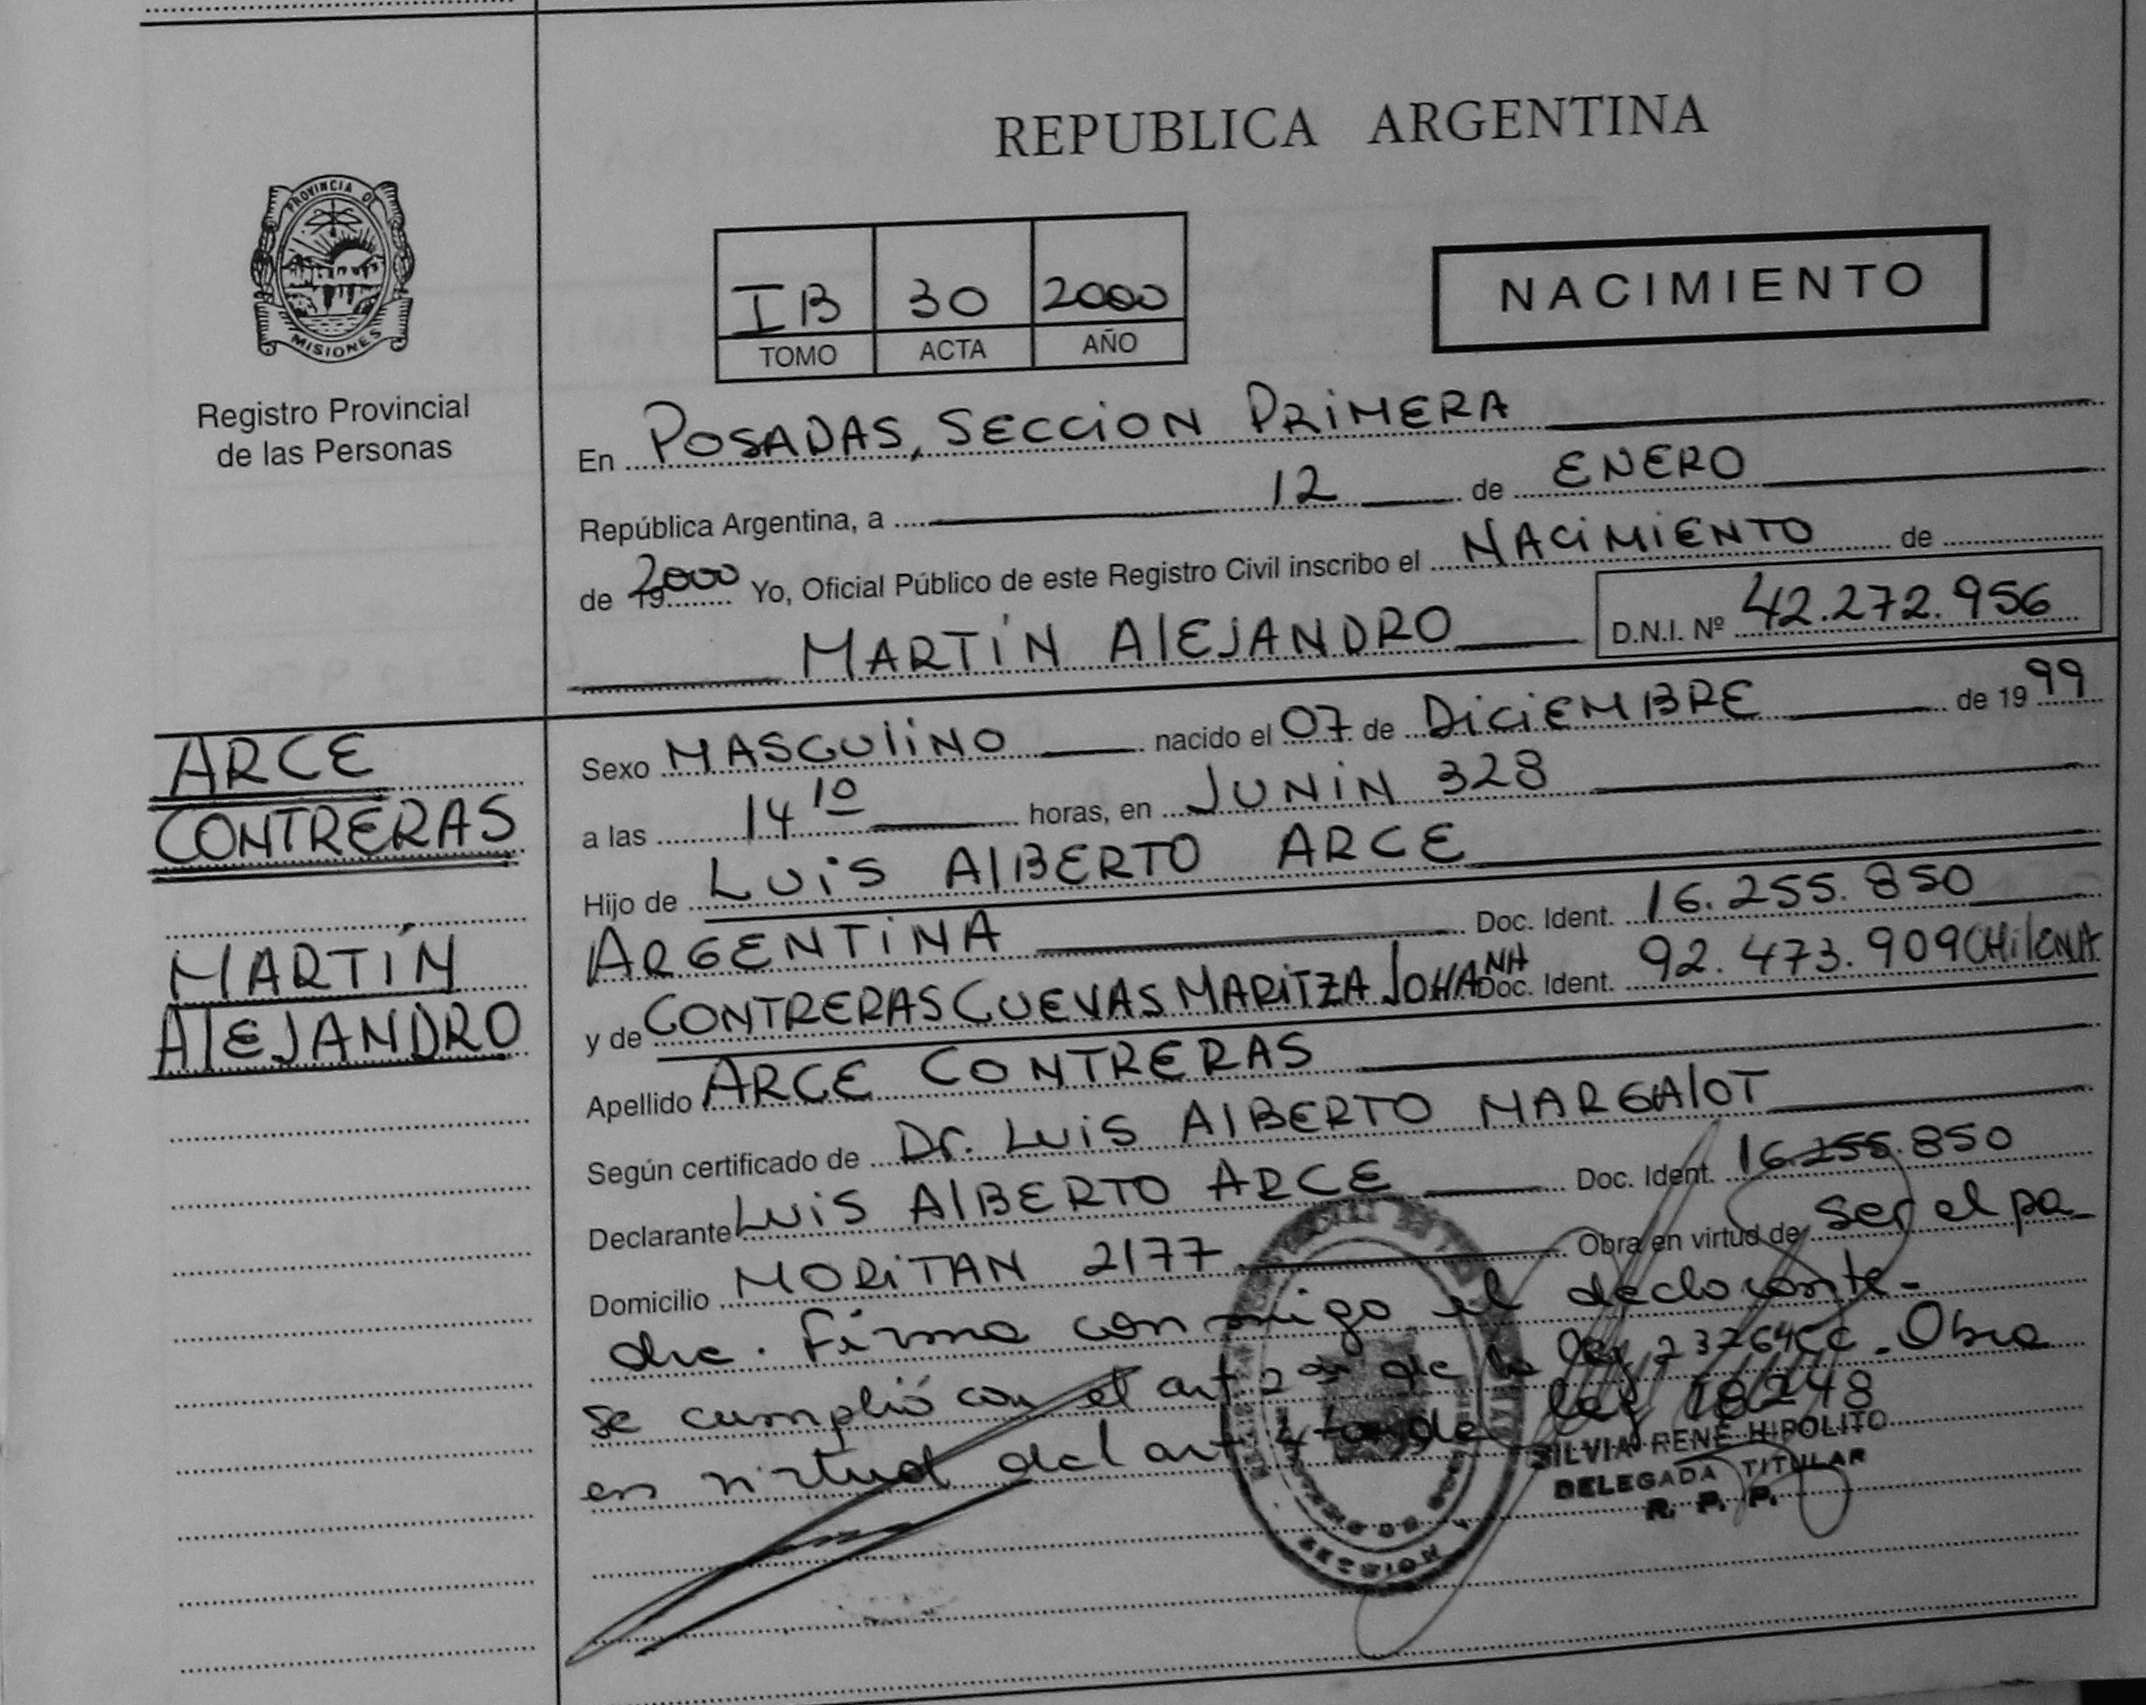 REPUBLICA ARGENTINA
PROVINCIA DE
MISIONES
Registro Provincial
de las Personas
IB 30 2000
TOMO ACTA AÑO
NACIMIENTO
En POSADAS, SECCION PRIMERA
República Argentina, a 12 de ENERO
de 2000 Yo, Oficial Público de este Registro Civil inscribo el NACIMIENTO de
MARTÍN ALEJANDRO D.N.I. Nº 42.272.956
ARCE
CONTRERAS
MARTÍN
ALEJANDRO
Sexo MASCULINO nacido el 07 de DICIEMBRE de 1999
a las 14 10 horas, en JUNIN 328
Hijo de LUIS ALBERTO ARCE
ARGENTINA Doc. Ident. 16.255.850
y de CONTRERAS CUEVAS MARITZA JOHANNH Doc. Ident. 92.473.909 CHILENA
Apellido ARCE CONTRERAS
Según certificado de Dr. LUIS ALBERTO MARGALOT
Declarante LUIS ALBERTO ARCE Doc. Ident. 16.255.850
Domicilio MORITAN 2177 Obra en virtud de ser el pa_
dre. Firma conmigo el declarante-
se cumplió con el art 2do de la ley 23264 CC. Obra
en virtud del art 4to de ley 18248
SILVIA RENÉ HIPOLITO
DELEGADA TITULAR
R. P. P.
SECCION